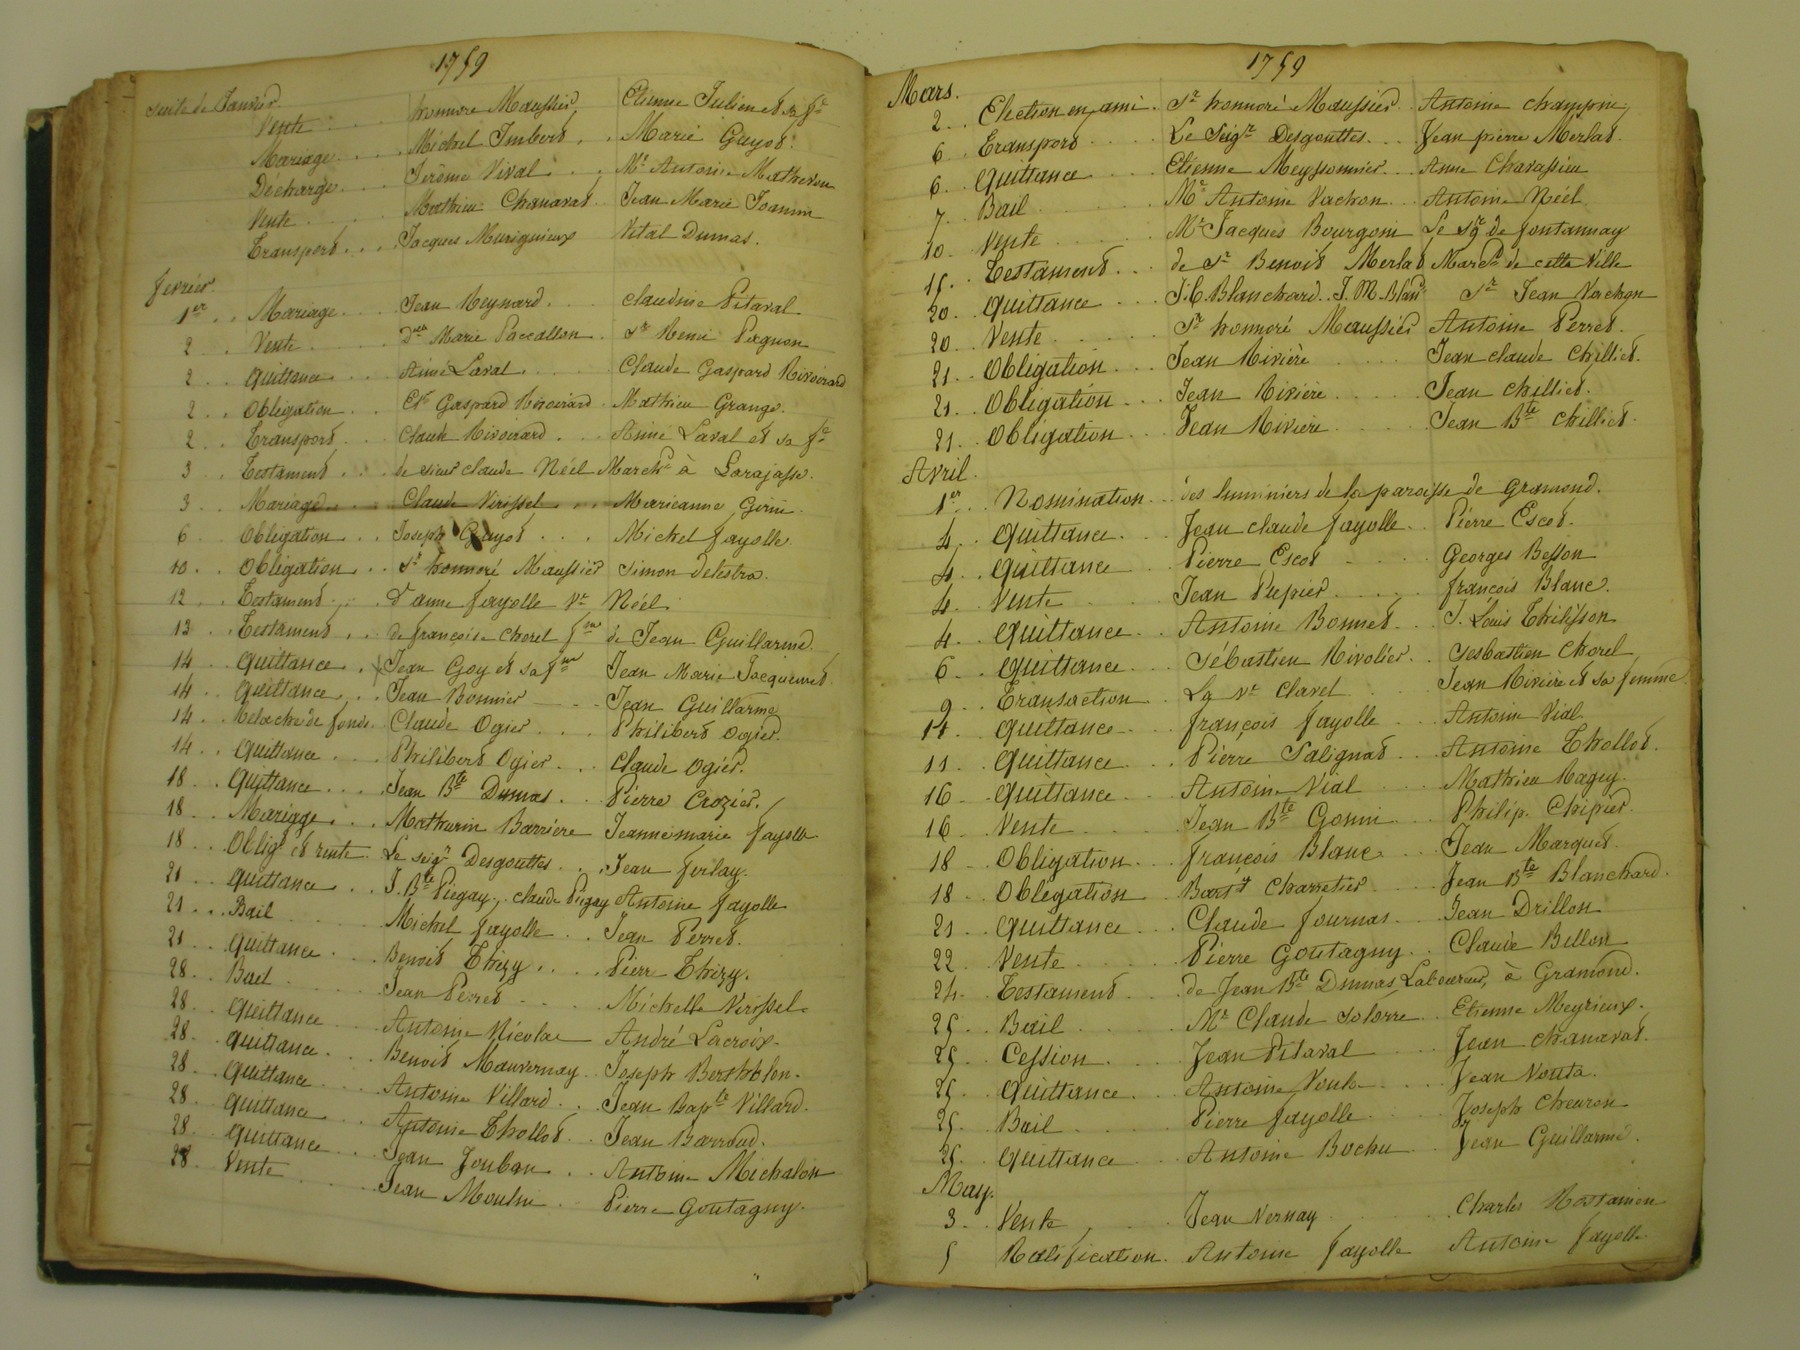 1759
suite de Janvier.
Vente honnore Maussier Etienne Julien et sa fe
Mariage Michel Imbert Marie Guyot
Décharge Jerôme Vival Mr Antoine Matheron
Vente Mathieu Chanavat Jean Marie Joannin
Transport Jacques Murigneux Vital Dumas.
fevrier.
1er Mariage Jean Reynard claudine Pitaval
2 Vente Dlle Marie Paccallon Sr Remi Pugnon
2 quittance Aimé Laval Claude Gaspard Rivoirard
2 Obligation Cde Gaspard Rivoirard Mathieu Grange.
2 Transport Claude Rivoirard Aimé Laval et sa fe
3 Testament de sieur claude Néel Marchd à Larajasse.
3 Mariage Claude Virissel Marieanne Girin
6 Obligation Joseph Guyot Michel fayolle
10 Obligation Sr honnoré Maussier Simon Delestra.
12 Testament d'anne fayolle Ve Néel
13 Testament de françoise chorel fme de Jean Guillarme.
14 quittance Jean Goy et sa fme Jean Marie Jacquemet
14 quittance Jean Bonnier Jean Guillarme
14 Relache de fonds Claude Ogier Philibert Ogier.
14 quittance Philibert Ogier Claude Ogier.
18 quittance Jean Bte Dumas Pierre Crozier.
18 Mariage Mathurin Barriere Jeannemarie fayolle
18 Oblig. et rente Le seigr Desgouttes Jean ferlay.
21 quittance J. Bte Piegay, claude Piegay Antoine fayolle
21 Bail Michel fayolle Jean Perret.
21 quittance Benoit Thizy Pierr Thizy.
28 Bail Jean Perret Michelle Virissel
28 quittance Antoine Nicolas André Lacroix.
28 quittance Benoit Mauvernay Joseph Bertholon.
28 quittance Antoine Villard Jean Bapte Villard.
28 quittance Antoine Thollot Jean Barroud.
28 quittance Jean Jouban Antoine Michalon
28 Vente Jean Moulin Pierre Goutagny.
1759
Mars.
2 Election en ami Sr honnoré Maussier Antoine champin
6 Transport Le Seigr Desgouttes Jean pierre Merlat
6 quittance Etienne Meyssonnier Anne Chavassieu
7 Bail Mr Antoine Vachon Antoine Néel
10 Vente Mr Jacques Bourgoin Le sgr de fontannay
15 Testament de Sr Benoit Merlat Marchd de cette Ville
20 quittance J. C. Blanchard. J. M. Bland Sr Jean Vachon
20 Vente Sr honnoré Maussier Antoine Perret.
21 Obligation Jean Riviere Jean claude chilliet.
21 Obligation Jean Riviere Jean chilliet.
21 Obligation Jean Riviere Jean Bte chilliet.
Avril.
1er Nomination des luminiers de la paroisse de Gramond.
4 quittance Jean claude fayolle Pierre Escot.
4 quittance Pierre Escot Georges Besson
4 Vente Jean Pupier françois Blanc.
4 quittance Antoine Bonnet J. Louis Thilisson
6 quittance Sébastien Rivolier sesbastien chorel
9 Transaction La Ve clavel Jean Riviere et sa femme
11 quittance françois fayolle Antoine Vial
11 quittance Pierre Salignat Antoine Thollot.
16 quittance Antoine Vial Mathieu Ragey.
16 Vente Jean Bte Gonin Philip. Chipier.
18 Obligation françois Blanc Jean Marquet.
18 Obligation Barty Charretier Jean Bte Blanchard.
21 quittance Claude fournas Jean Drillon
22 Vente Pierre Goutagny Claude Billon
24 Testament de Jean Bte Dumas Laboureur, à Gramond.
25 Bail Mr Claude solorre Etienne Meyrieux.
25 Cession Jean Pitaval Jean Chanavat.
25 quittance Antoine Voute Jean Vouta.
25 Bail Pierre fayolle Joseph Cheuron
25 quittance Antoine Bochu Jean Guillarme.
May.
3 Vente Jean Vernay Charles Rostamien
5 Ratification Antoine fayolle Antoine fayolle